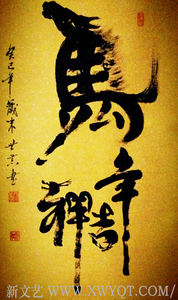 馬
年吉
祥
癸巳年歲末
新文艺 WWW.XWYQT.COM